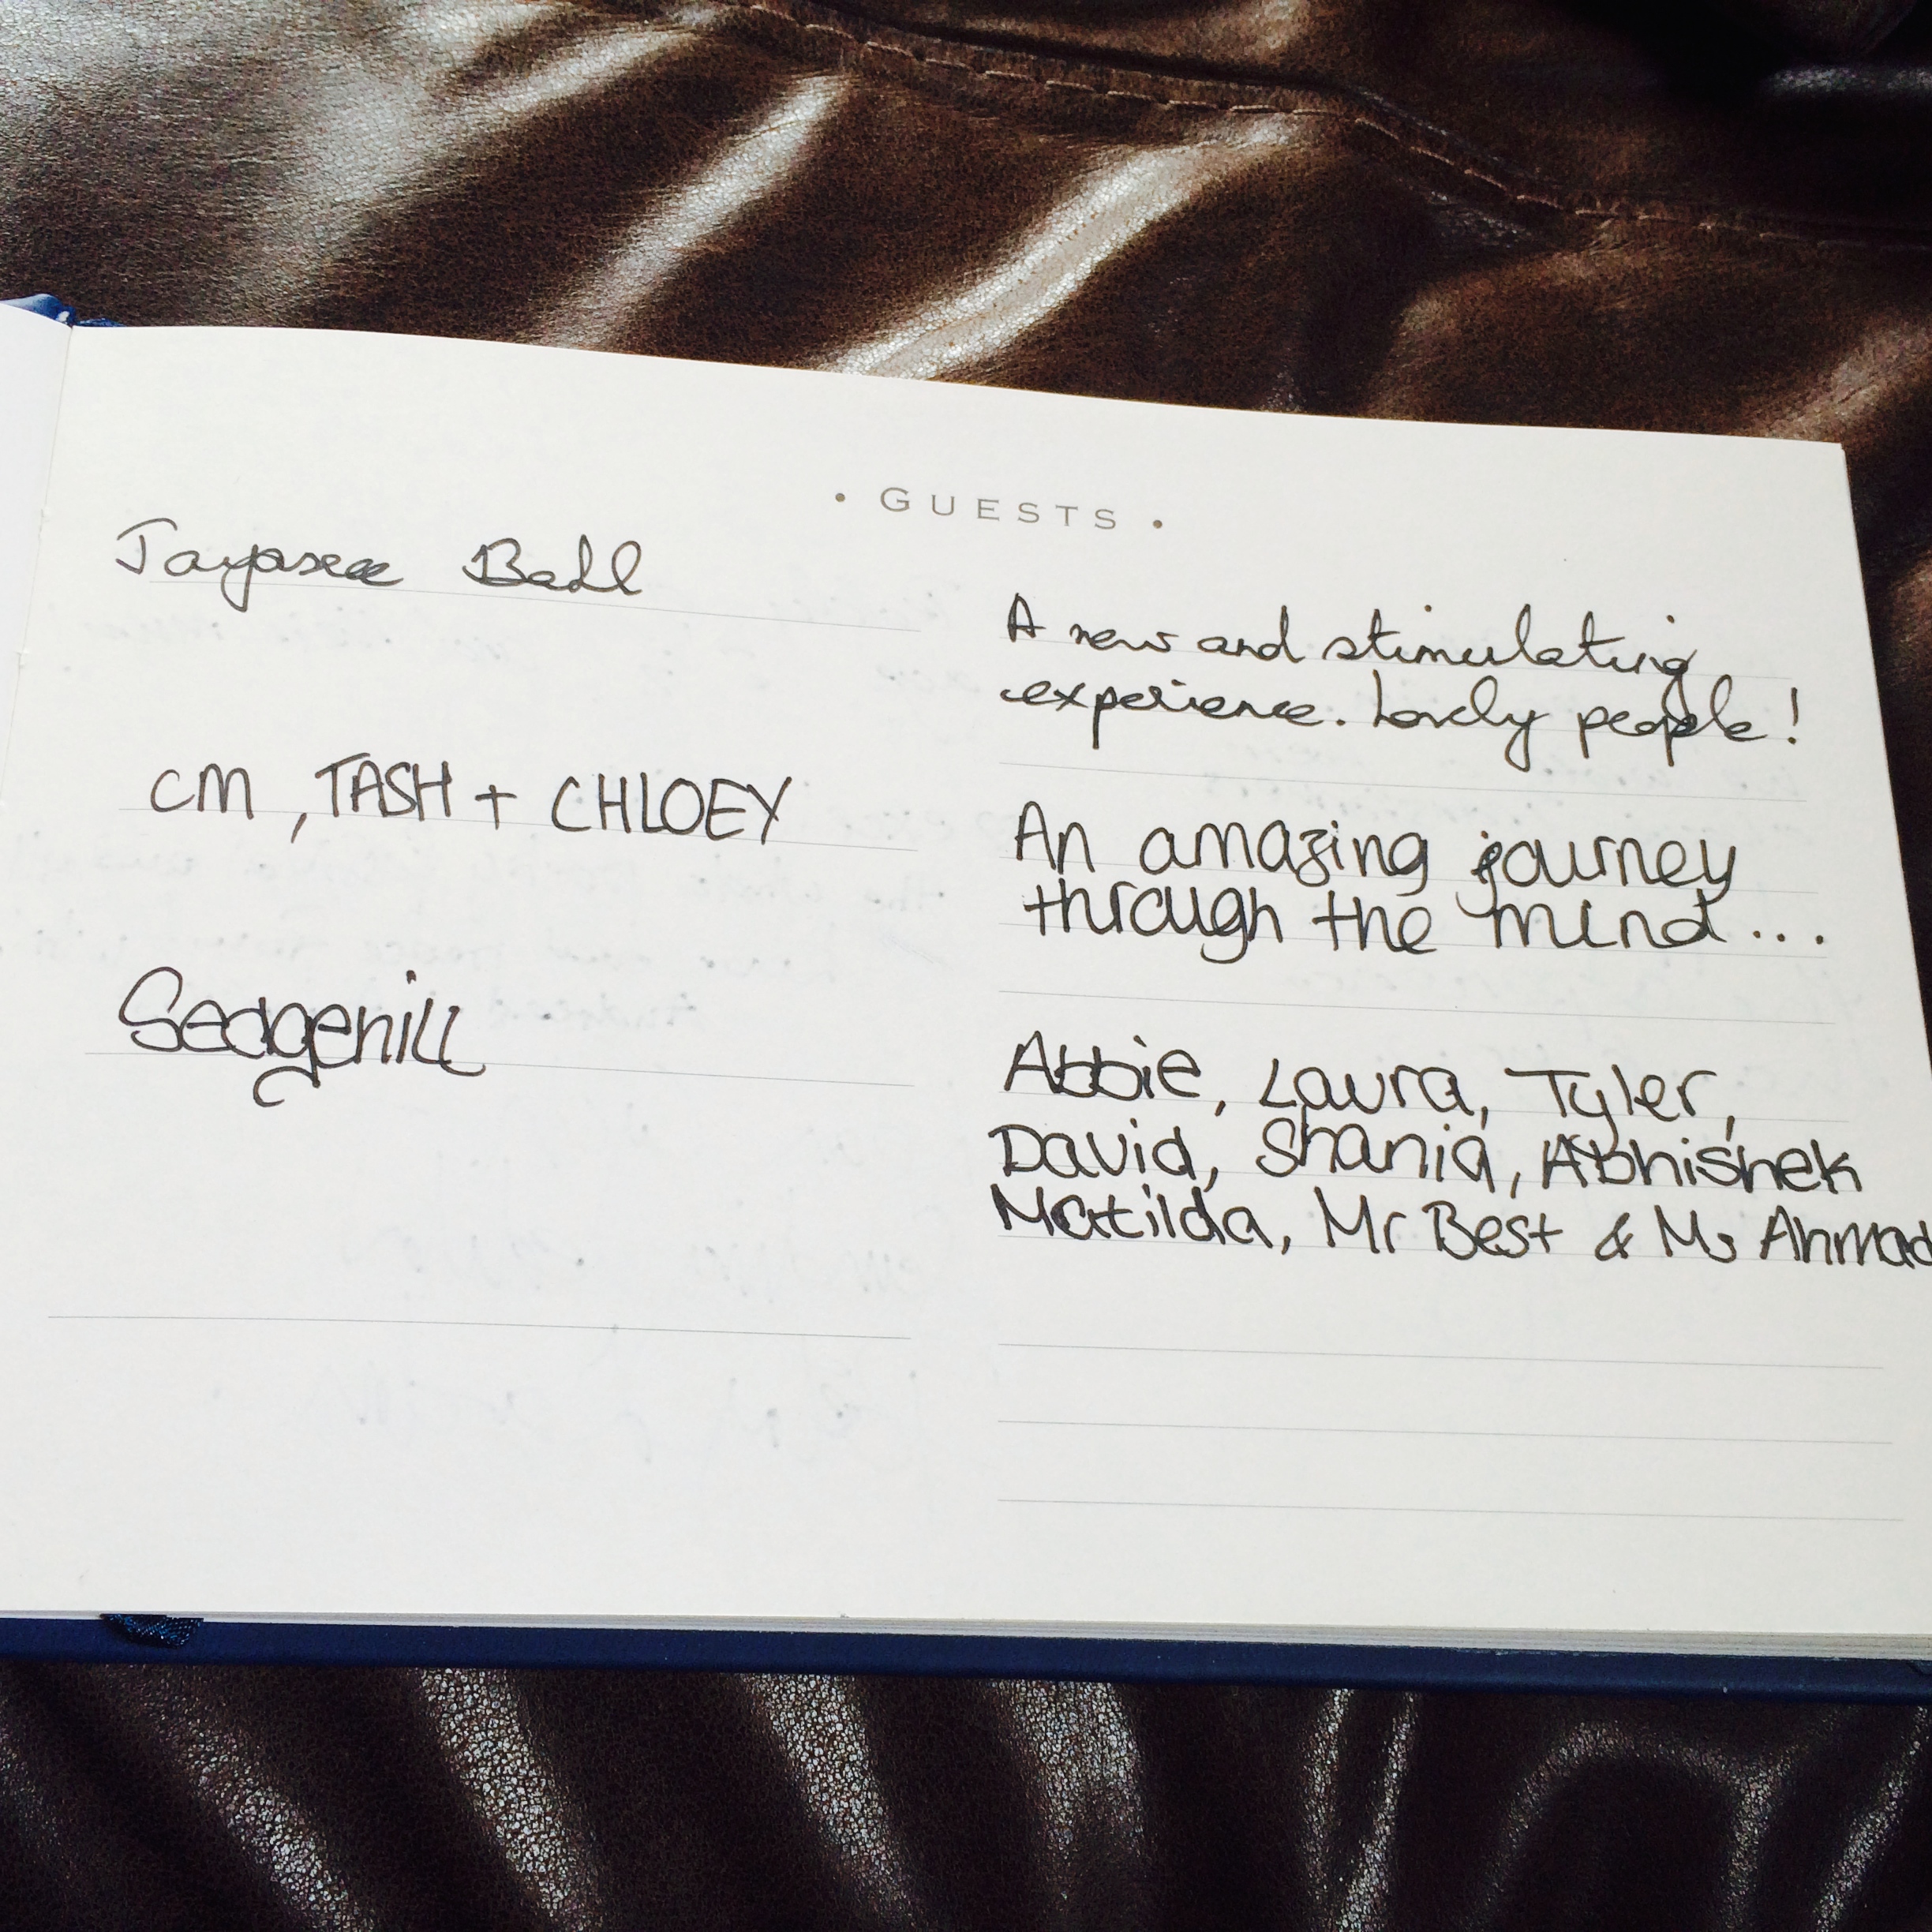 • GUESTS •
Jayasree
A new and stimulating
experience. Lovely people!
CM, TASH + CHLOEY
An amazing journey
through the mind...
Sedgehill
Abbie, Laura, Tyler,
David, Shania, Abhishek
Matilda, Mr Best & Ms Ahmad